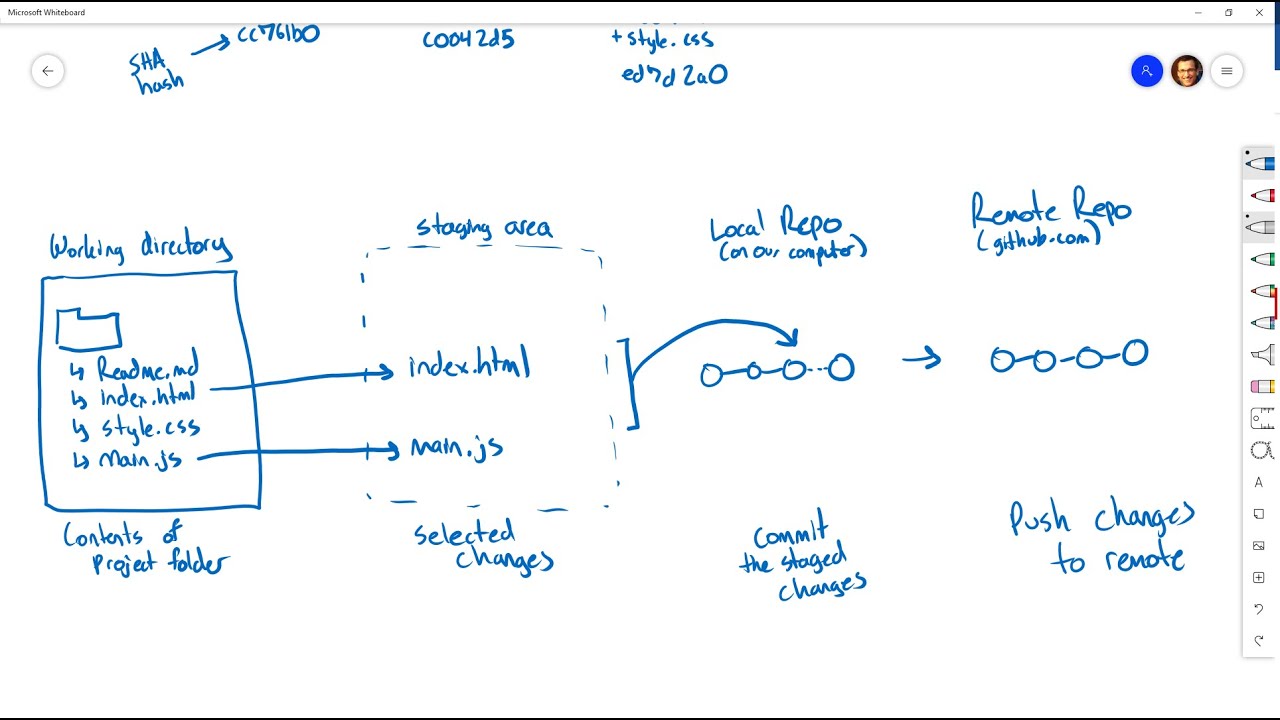 Microsoft Whiteboard
SHA
hash
cc761b0
c0042d5
+ style.css
ed7d2a0
Working directory
Readme.md
index.html
style.css
main.js
Contents of
project folder
staging area
index.html
main.js
selected
changes
Local Repo
(on our computer)
Commit
the staged
changes
Remote Repo
(github.com)
Push changes
to remote
A